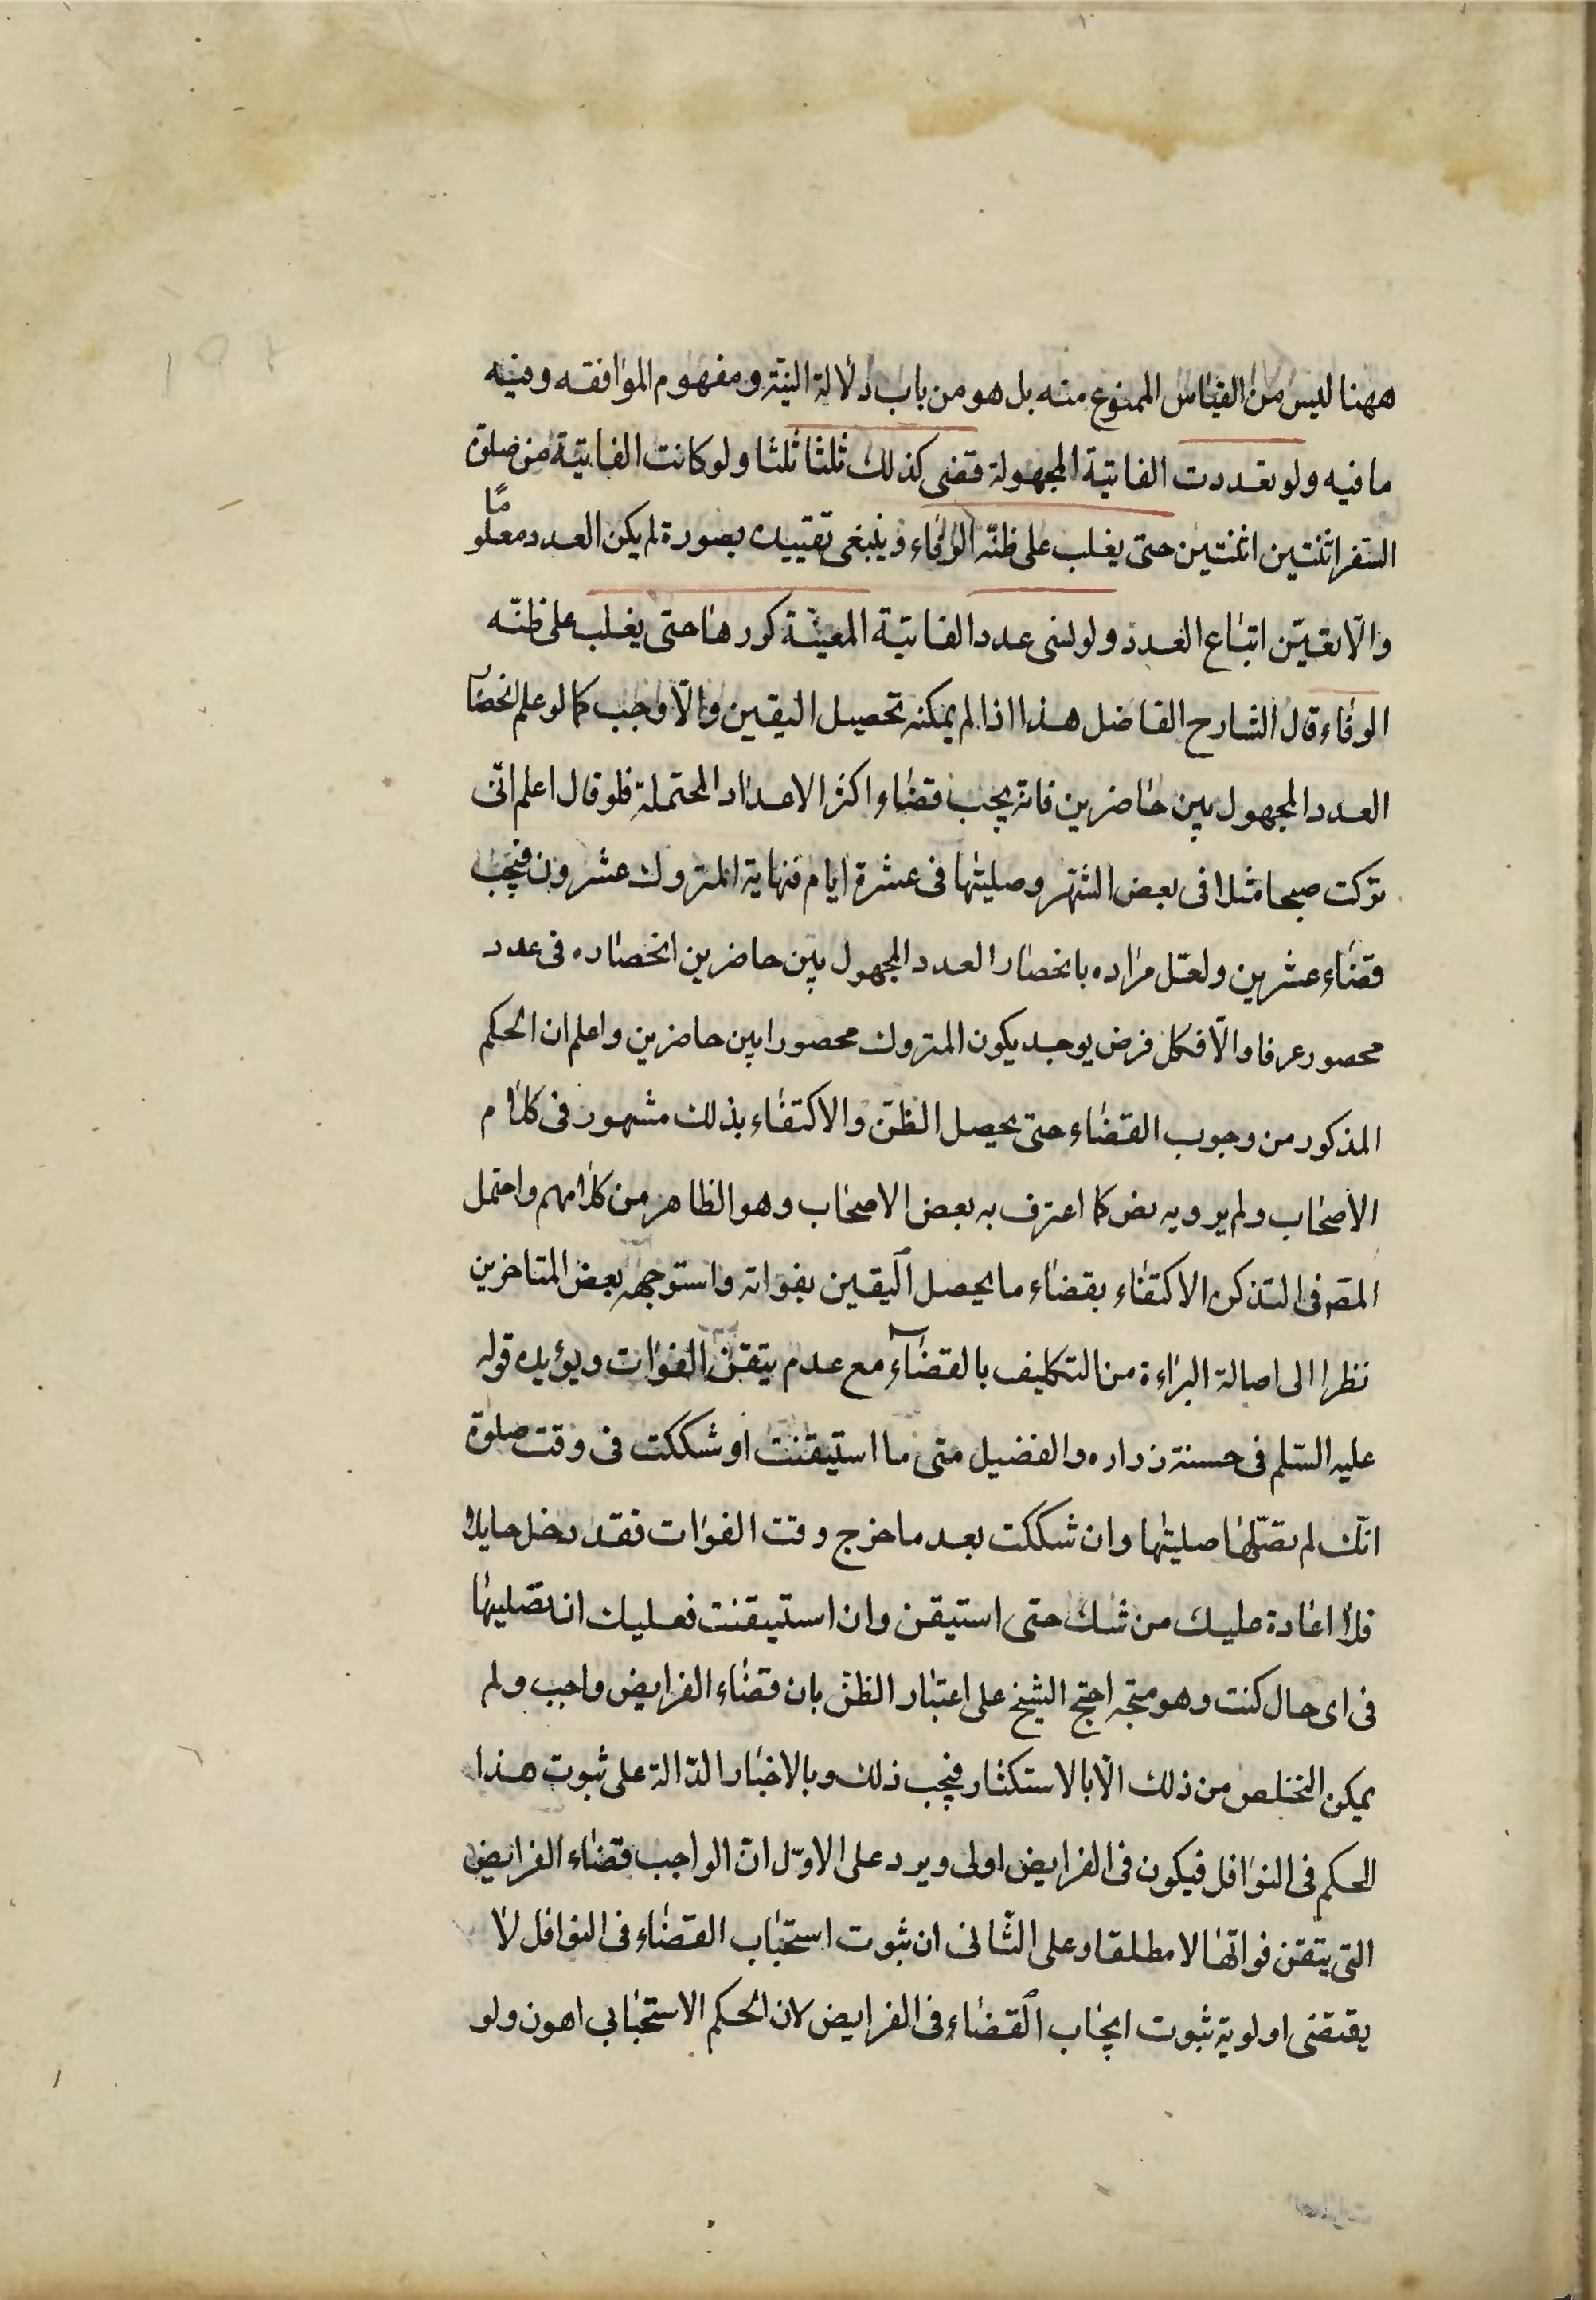 ههنا ليس من القياس الممنوع منه بل هو من باب دلالة البنية ومفهوم الموافقه وفيه
ما فيه ولو تعددت الفايتة المجهولة قضى كذلك ثلثا ثلثا ولو كانت الفايتة من صلوة
السفر اثنتين اثنتين حتى يغلب على ظنه الوفاء وينبغى تقييده بصورة لم يكن العدد معلوما
والّا تعيّن اتباع العدد ولو نسى عدد الفايتة المعينة كررها حتى يغلب على ظنّه
الوفاء قال الشارح الفاضل هذا اذا لم يمكنه تحصيل اليقين والّا وجب كما لو علم انحصار
العدد المجهول بين حاضرين فانه يجب قضاء اكثر الاعداد المحتملة فلو قال اعلم انّى
تركت صبحا مثلا فى بعض الشهر وصليتها فى عشرة ايام فنهاية المتروك عشرون فيجب
قضاء عشرين ولعل مراده بانحصار العدد المجهول بين حاضرين انحصاره فى عدد
محصور عرفا والّا فكل فرض يوجد يكون المتروك محصورا بين حاضرين واعلم ان الحكم
المذكور من وجوب القضاء حتى يحصل الظنّ والاكتفاء بذلك مشهور فى كلام
الاصحاب ولم يرو به نص كما اعترف به بعض الاصحاب وهو الظاهر من كلامهم واحتمل
المصّ فى التذكره الاكتفاء بقضاء ما يحصل اليقين بفواته واستوجهه بعض المتاخرين
نظرا الى اصالة البراءة من التكليف بالقضاء مع عدم يتقن الفوات ويؤيده قوله
عليه السّلم فى حسنة زراره والفضيل متى ما استيقنت او شككت فى وقت صلوة
انّك لم تصلّها صليتها وان شككت بعد ما خرج وقت الفوات فقد دخل حايل
فلا اعادة عليك من شك حتى استيقن وان استيقنت فعليك ان تصليها
فى اى حال كنت وهو متجه احتج الشيخ على اعتبار الظن بان قضاء الفرايض واجب ولم
يمكن التخلص من ذلك الّا بالاستكثار فيجب ذلك وبالاخبار الدّالة على ثبوت هذا
الحكم فى النوافل فيكون فى الفرايض اولى ويرد على الاوّل انّ الواجب قضاء الفرايض
التى يتقن فواتها لا مطلقا وعلى الثّانى ان ثبوت استحباب القضاء فى النوافل لا
يقتضى اولوية ثبوت ايجاب القضاء فى الفرايض لان الحكم الاستحبابى اهون ولو